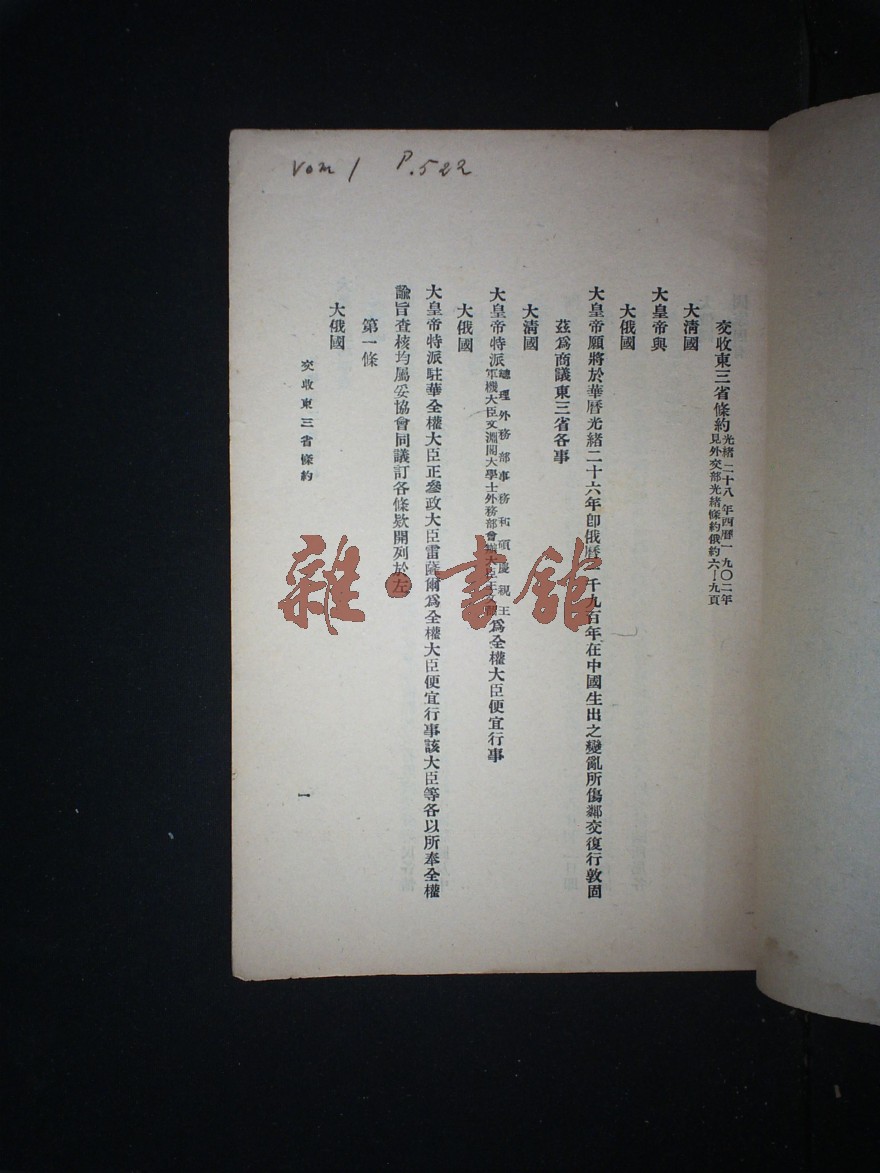 Vom 1 P.522
交收東三省條約光緒二十八年西曆一九〇二年
見外交部光緒條約俄約六—九頁
大清國
大皇帝與
大俄國
大皇帝願將於華曆光緒二十六年卽俄曆一千九百年在中國生出之變亂所傷鄰交復行敦固
茲爲商議東三省各事
大清國
大皇帝特派總理外務部事務和碩慶親王
軍機大臣文淵閣大學士外務部會辦大臣王爲全權大臣便宜行事
大俄國
大皇帝特派駐華全權大臣正參政大臣雷薩爾爲全權大臣便宜行事該大臣等各以所奉全權
諭旨查核均屬妥協會同議訂各條欵開列於左
第一條
大俄國
交收東三省條約
一
雜·書館